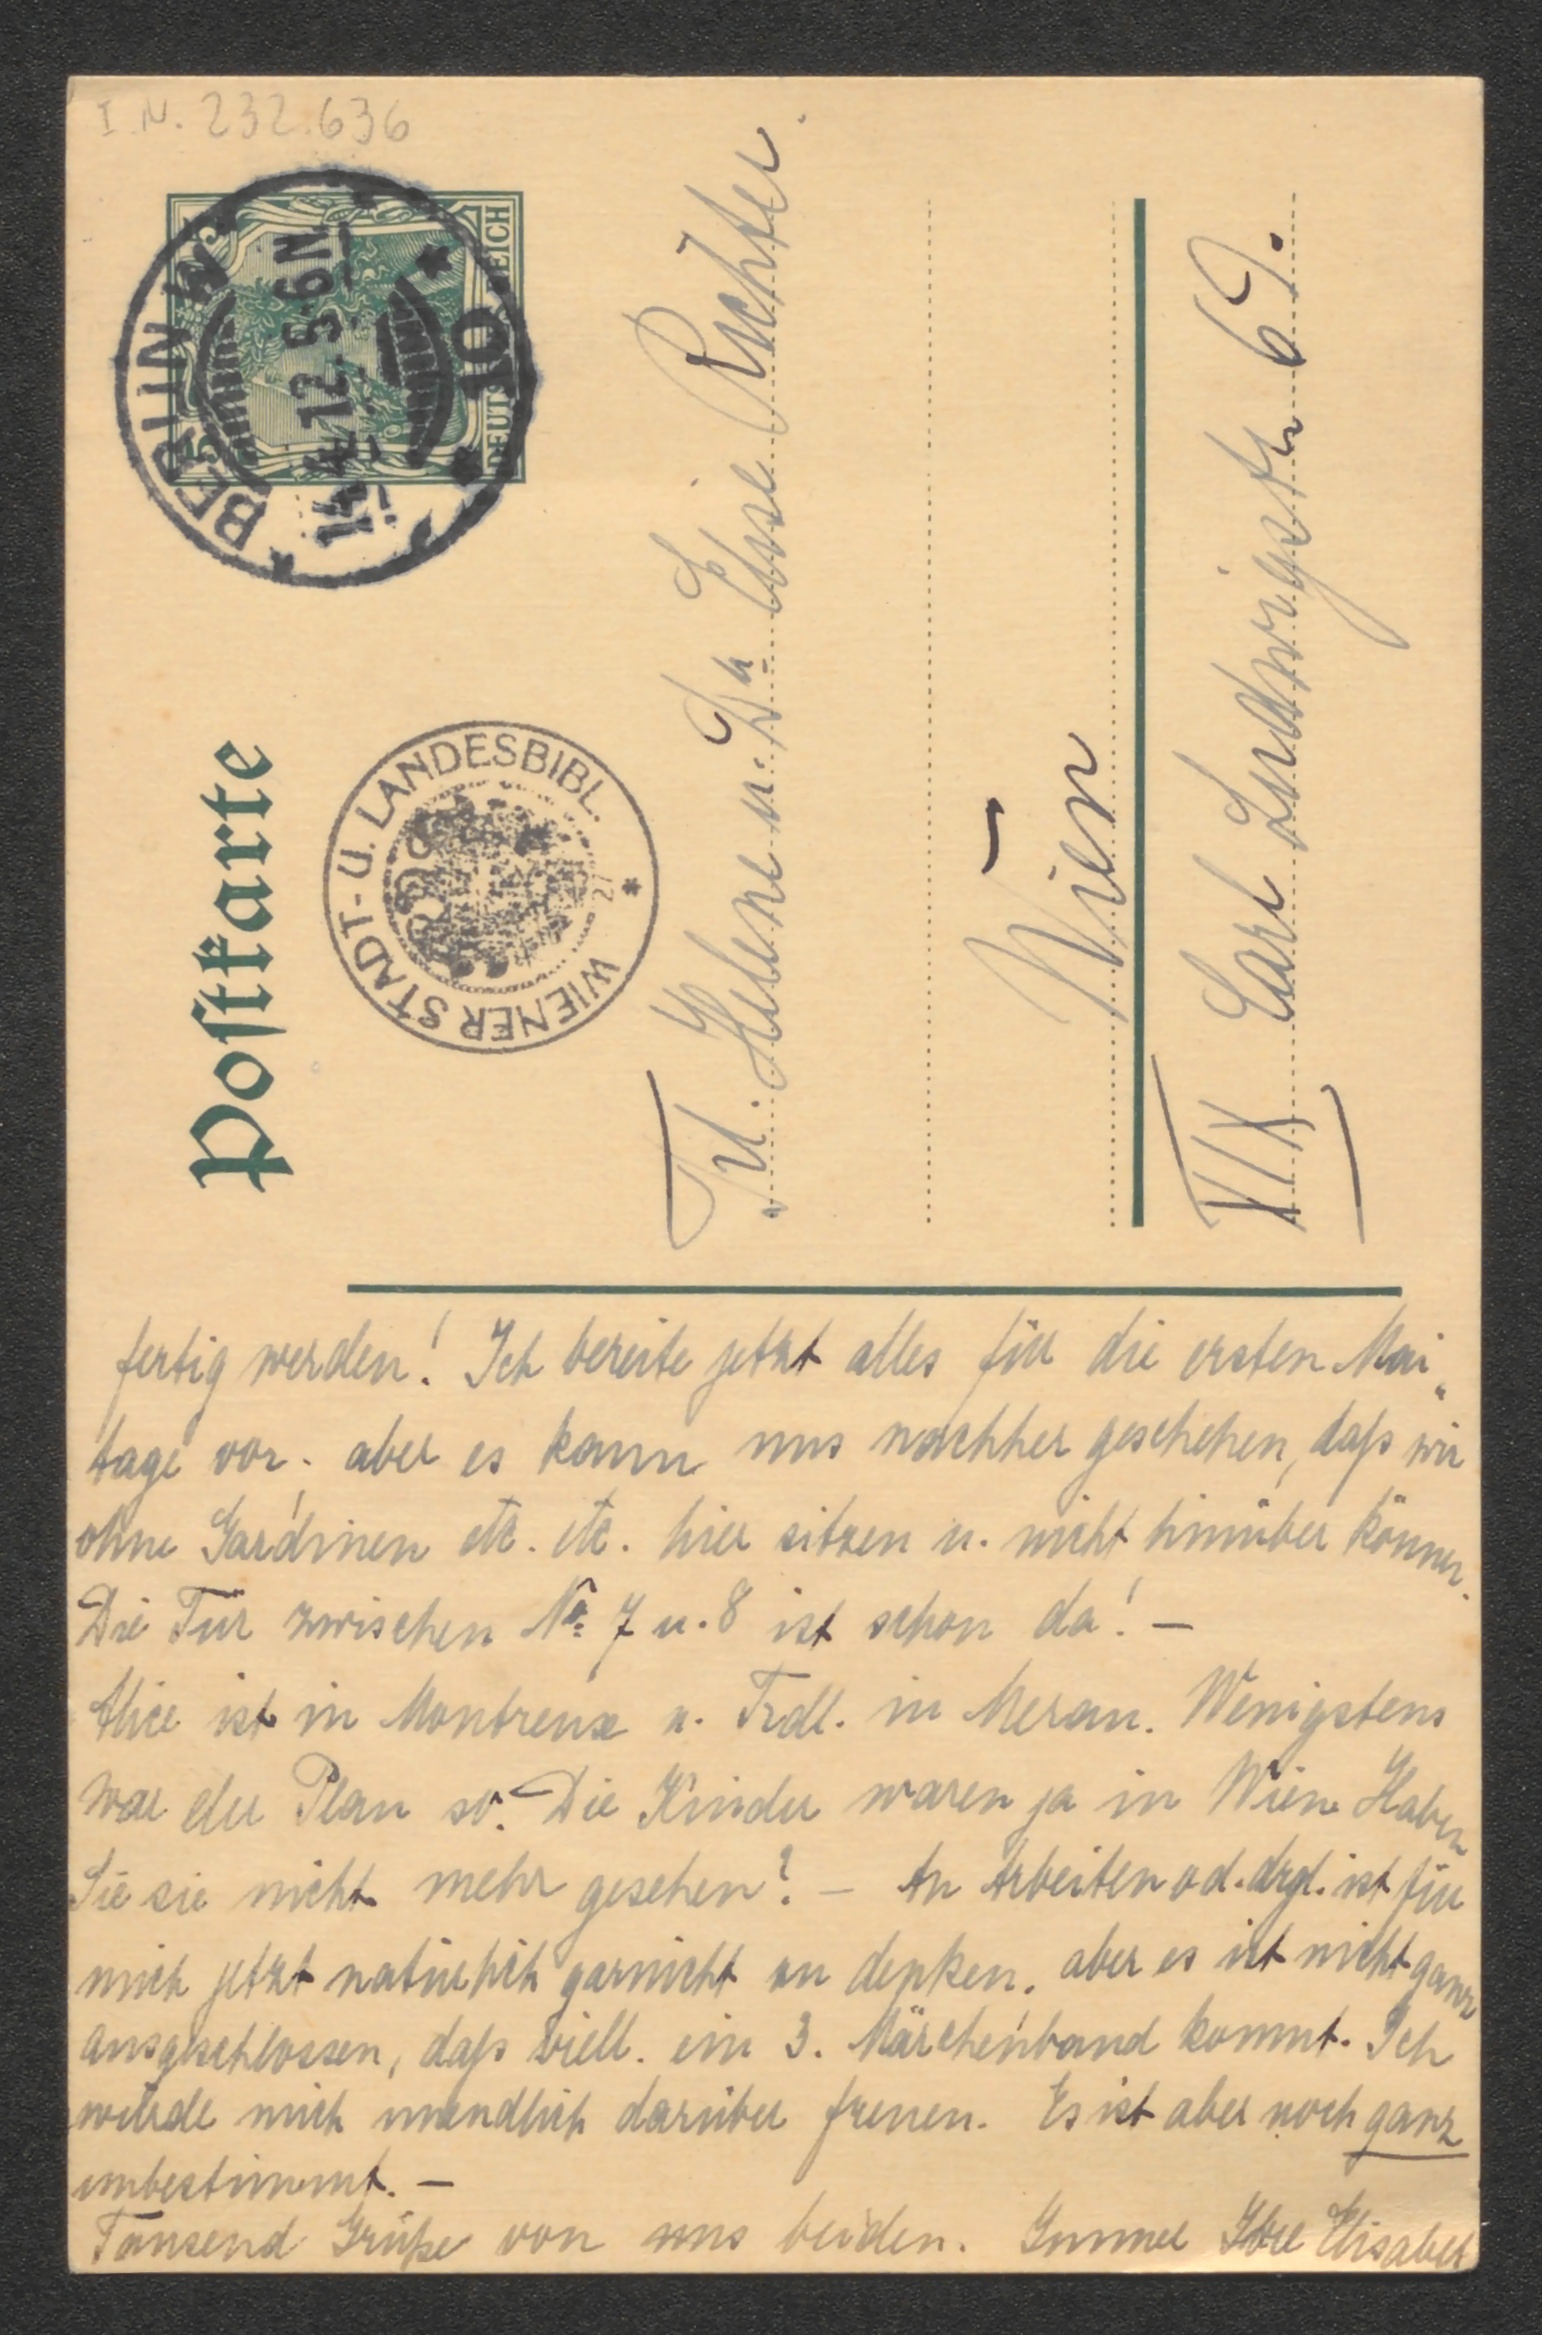 I.N. 232.636
BERLIN W
14.4.12.5-6N
10
DEUTSCHES REICH
Postkarte
WIENER STADT- U. LANDESBIBL.
Frl. Helene u. Dr. Elise Richter.
Wien
XIX Carl Ludwigstr 69.
fertig werden! Ich bereite jetzt alles für die ersten Mai„
tage vor. aber es kann uns nachher geschehen, daß wir
ohne Gardinen etc. etc. hier sitzen u. nicht hinüber können.
Die Tür zwischen No 7 u. 8 ist schon da! –
Alice ist in Montreux u. Frdl. in Meran. Wenigstens
war der Plan so. – Die Kinder waren ja in Wien. Haben
Sie sie nicht mehr gesehen? – An Arbeiten od. drgl. ist für
mich jetzt natürlich garnicht zu denken. aber es ist nicht ganz
ausgeschlossen, daß viell. ein 3. Märchenband kommt. Ich
würde mich unendlich darüber freuen. Es ist aber noch ganz
unbestimmt. –
Tausend Grüße von uns beiden. Immer Ihre Elisabet